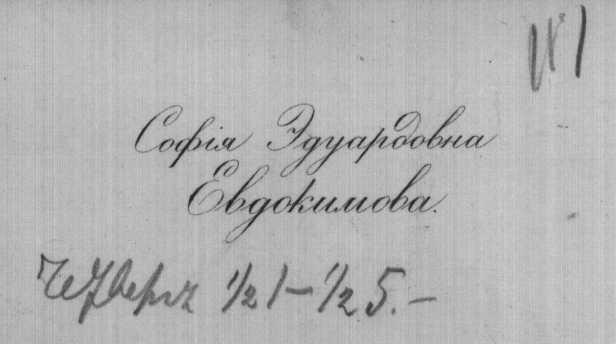 № 1
Софія Эдуардовна
Евдокимова.
Четвергъ 1/2 1 – 1/2 5. –